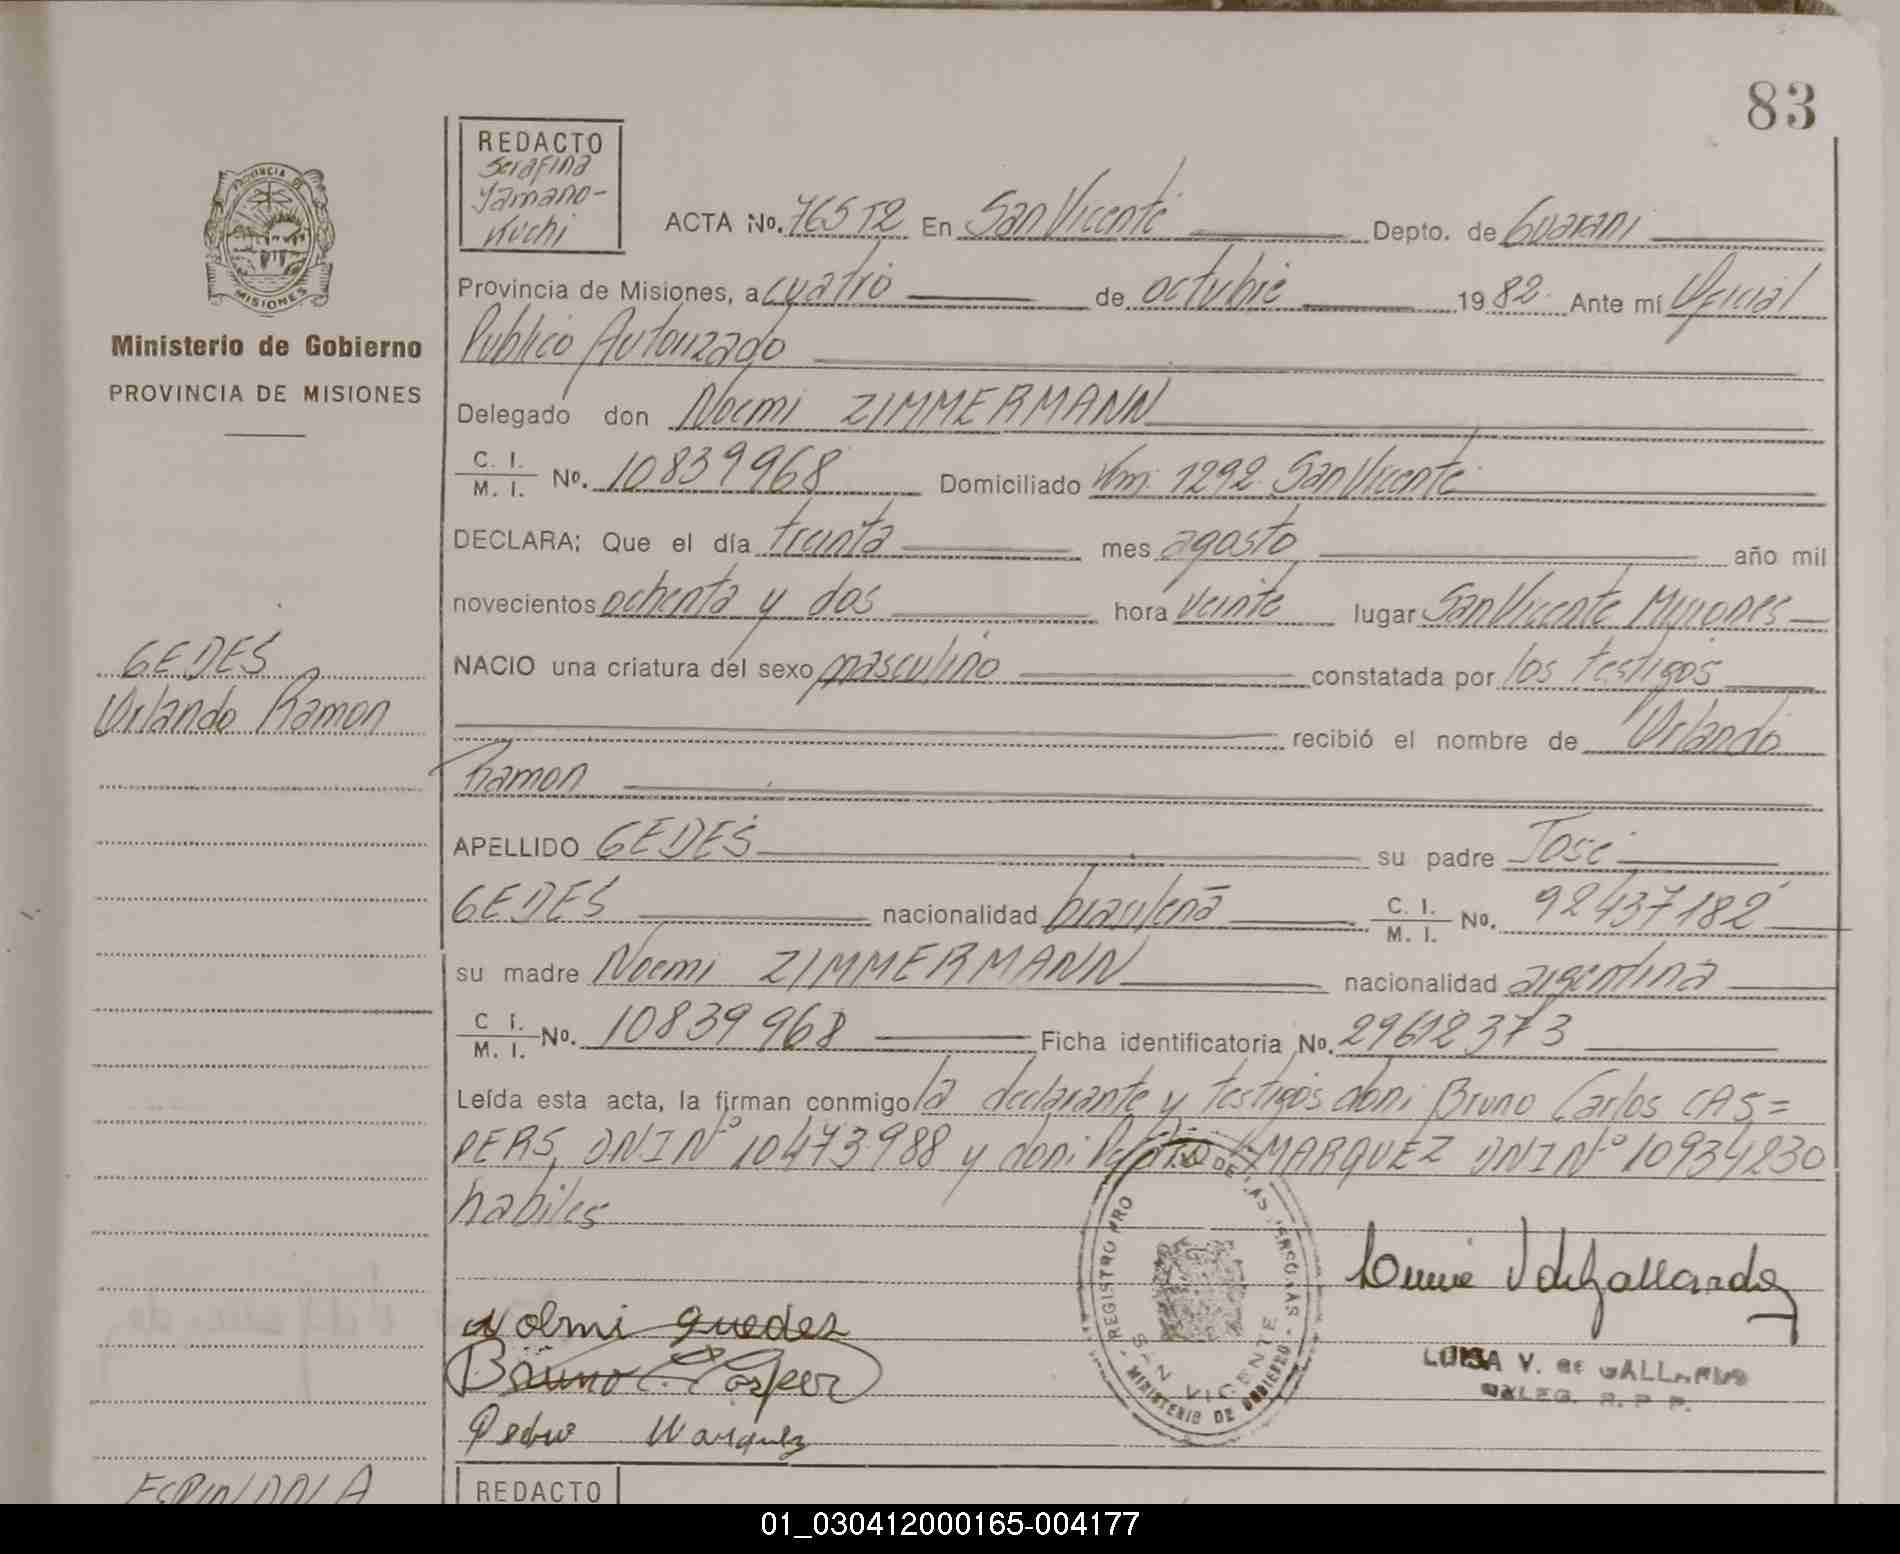 83
REDACTO
Serafina
Yamano-
Kuchi
PROVINCIA DE
MISIONES
Ministerio de Gobierno
PROVINCIA DE MISIONES
ACTA No. 765 T2 En San Vicente Depto. de Guarani
Provincia de Misiones, a cuatro de octubre 1982 Ante mí Oficial
Publico Autorizado
Delegado don Noemi ZIMMERMANN
C. I. / M. I. No. 10839968 Domiciliado Km. 1292 San Vicente
DECLARA; Que el día treinta mes agosto año mil
novecientos ochenta y dos hora veinte lugar San Vicente Misiones
NACIO una criatura del sexo masculino constatada por los testigos
recibió el nombre de Orlando
Ramon
GEDES
Orlando Ramon
APELLIDO GEDES su padre José
GEDES nacionalidad brasileña C. I. / M. I. No. 92437182
su madre Noemi ZIMMERMANN nacionalidad argentina
C I. / M. I. No. 10839968 Ficha identificatoria No. 29612373
Leída esta acta, la firman conmigo la declarante y testigos don: Bruno Carlos CAS=
PERS, DNI Nº 10473988 y don: MARQUEZ DNI Nº 10934230
habiles
REGISTRO PRO DE LAS PERSONAS
SAN VICENTE
MINISTERIO DE GOBIERNO
Noemi Guedes
Bruno C. Casper
Pedro Marquez
LUISA V. de GALLARDO
DELEG. R. P. P.
ESPINDOLA
REDACTO
01_030412000165-004177